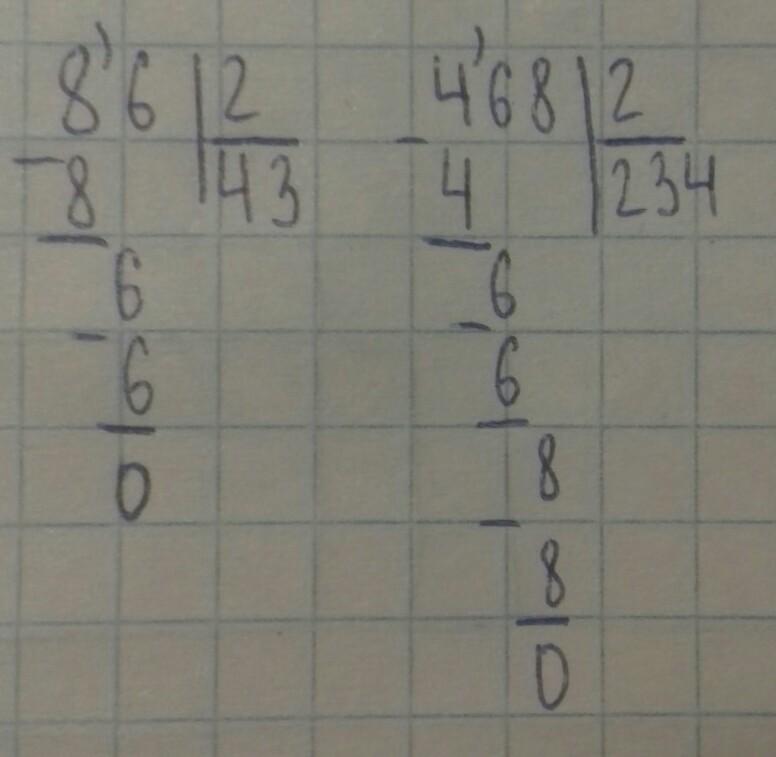 8'6 | 2
- 8 | 43
6
- 6
0
4'68 | 2
- 4 | 234
6
- 6
8
- 8
0